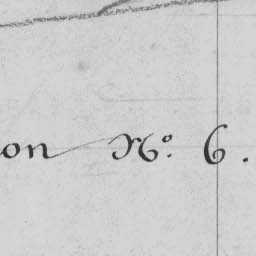 on Nº. 6.